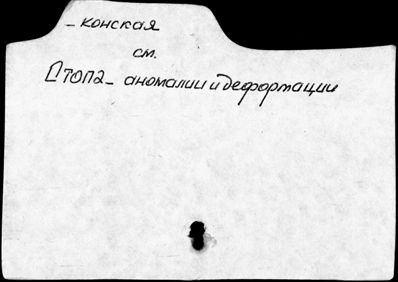 - конская
см.
Стопа - аномалии и деформации